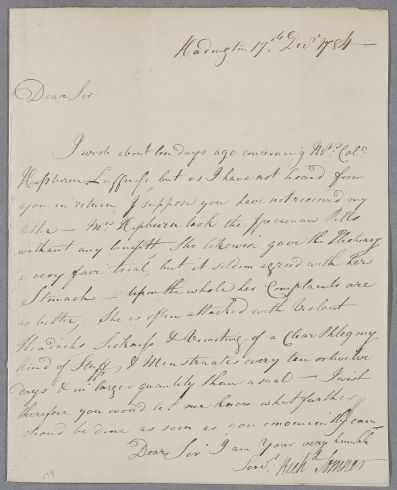 Hadington 17th. Decr. 1784 —
Dear Sir
I wrote about ten days ago concerning Mrs. Colo.
Hepburn Luffness, but as I have not heard from
you in return, I suppose you have not received my
letter — Mrs. Hepburn took the Ipecacuan Pills
without any benefitt. She likewise gave the Electuary
a very fair trial, but it seldom agreed with her
Stomach — upon the whole her Complaints are
no better, She is often attacked with Violent
Headachs Sickness & Vomiting of a Clear Phlegmy
kind of Stuff, & Menstruates every ten or twelve
days & in larger quantity than usual — I wish
therefore you would let me know what further
should be done as soon as you conveniently can
Dear Sir I am Your very humble
Servt. Richd. Somner